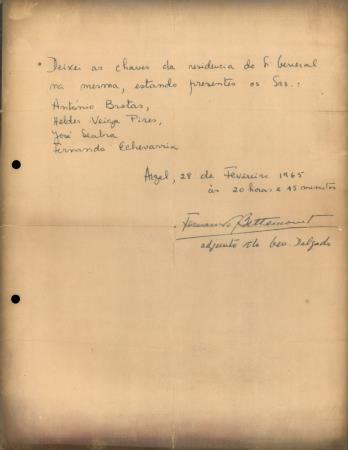 • Deixei as chaves da residencia do Sr General
na mesma, estando presentes os Srs.:
António Brotas,
Helder Veiga Pires,
José Seabra
Fernando Echevarria
Argel, 28 de Fevereiro 1965
às 20 horas e 45 minutos
Fernando Bettencourt
adjunto do Gen. Delgado